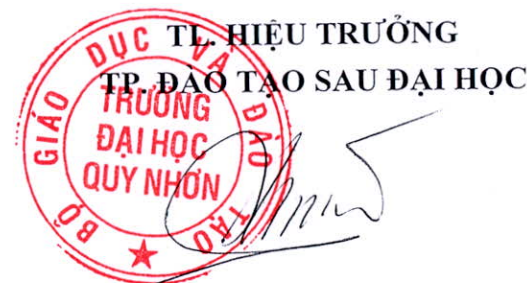 TL. HIỆU TRƯỞNG
TP. ĐÀO TẠO SAU ĐẠI HỌC
BỘ GIÁO DỤC VÀ ĐÀO TẠO
TRƯỜNG
ĐẠI HỌC
QUY NHƠN